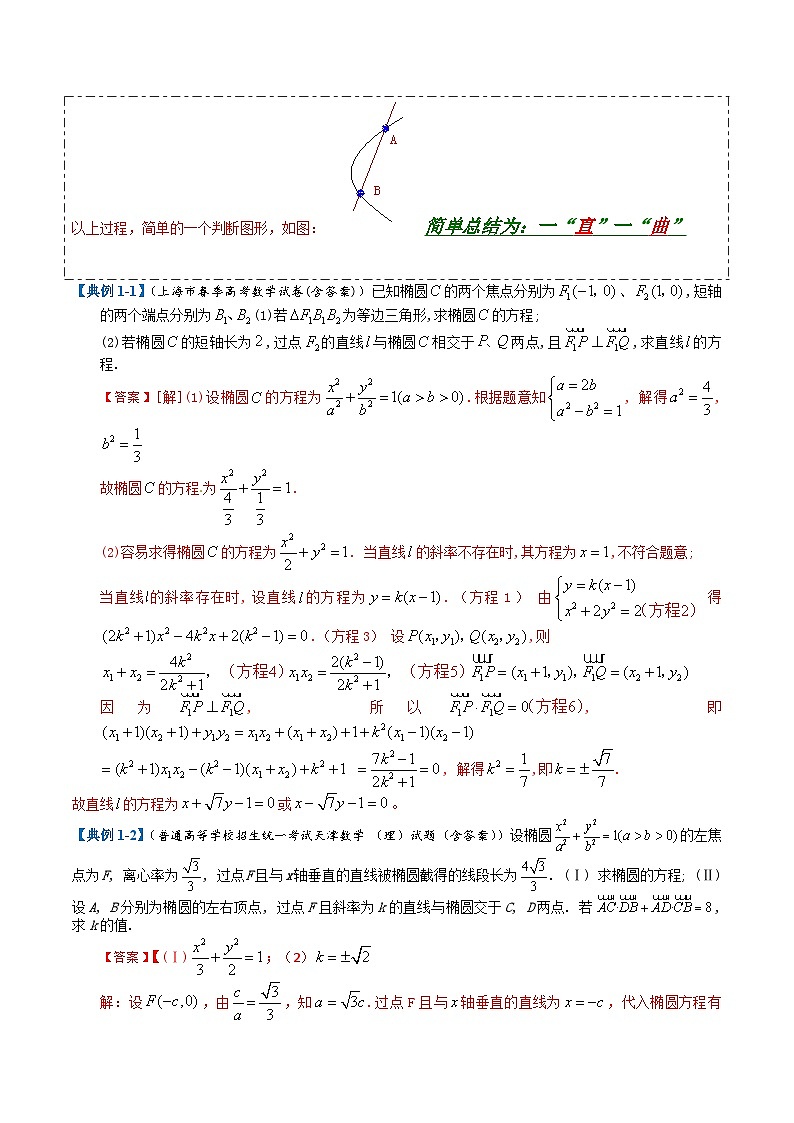 A
B
以上过程，简单的一个判断图形，如图：　简单总结为：一“直”一“曲”
【典例 1-1】(上海市春季高考数学试卷(含答案)) 已知椭圆 C 的两个焦点分别为 F₁(−1, 0) 、 F₂(1, 0) ,短轴
的两个端点分别为 B₁、B₂ (1)若 ΔF₁B₁B₂ 为等边三角形,求椭圆 C 的方程;
(2)若椭圆 C 的短轴长为 2 ,过点 F₂ 的直线 l 与椭圆 C 相交于 P、Q 两点,且 F₁P ⊥ F₁Q ,求直线 l 的方
程.
【答案】[解](1)设椭圆 C 的方程为 x²/a² + y²/b² = 1(a > b > 0) .根据题意知 { a = 2b  a² − b² = 1 , 解得 a² = 4/3 ,
b² = 1/3
故椭圆 C 的方程为 x²/(4/3) + y²/(1/3) = 1 .
(2)容易求得椭圆 C 的方程为 x²/2 + y² = 1 . 当直线 l 的斜率不存在时,其方程为 x = 1 ,不符合题意;
当直线 l 的斜率存在时, 设直线 l 的方程为 y = k(x − 1) . (方程 1 ) 由 { y = k(x − 1)  x² + 2y² = 2 (方程2) 得
(2k² + 1)x² − 4k²x + 2(k² − 1) = 0 . (方程 3) 设 P(x₁, y₁), Q(x₂, y₂) ,则
x₁ + x₂ = 4k²/(2k² + 1), (方程4) x₁x₂ = 2(k² − 1)/(2k² + 1), (方程5) F₁P = (x₁ + 1, y₁), F₁Q = (x₂ + 1, y₂)
因 为 F₁P ⊥ F₁Q , 所 以 F₁P · F₁Q = 0 (方程6) , 即
(x₁ + 1)(x₂ + 1) + y₁y₂ = x₁x₂ + (x₁ + x₂) + 1 + k²(x₁ − 1)(x₂ − 1)
= (k² + 1)x₁x₂ − (k² − 1)(x₁ + x₂) + k² + 1 = (7k² − 1)/(2k² + 1) = 0 , 解得 k² = 1/7 ,即 k = ± √7/7 .
故直线 l 的方程为 x + √7y − 1 = 0 或 x − √7y − 1 = 0 。
【典例 1-2】(普通高等学校招生统一考试天津数学 (理) 试题 (含答案))设椭圆 x²/a² + y²/b² = 1(a > b > 0) 的左焦
点为 F, 离心率为 √3/3 , 过点 F 且与 x 轴垂直的直线被椭圆截得的线段长为 4√3/3 . (Ⅰ) 求椭圆的方程; (Ⅱ)
设 A, B 分别为椭圆的左右顶点, 过点 F 且斜率为 k 的直线与椭圆交于 C, D 两点. 若 AC·DB + AD·CB = 8 ,
求 k 的值.
【答案】【(Ⅰ) x²/3 + y²/2 = 1 ; (2) k = ±√2
解: 设 F(−c, 0) , 由 c/a = √3/3 , 知 a = √3c . 过点 F 且与 x 轴垂直的直线为 x = −c , 代入椭圆方程有